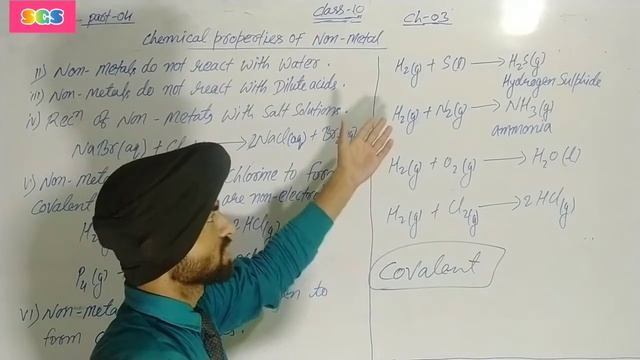 SCS
part-04
Class-10
Ch-03
Chemical properties of Non-metal
iii) Non-metals do not react with Water.
iii) Non-metals do not react with Dilute acids.
iv) Recn of Non-metals with Salt Solutions.
NaBr(aq) + Cl → 2NaCl(aq) + Br
v) Non-met Chlorine to form
Covalent are non-electro
H2 2HCl
P4(g) +
vi) Non-meta to
form
H2(g) + S(l) → H2S(g)
Hydrogen Sulphide
H2(g) + N2(g) → NH3(g)
ammonia
H2(g) + O2(g) → H2O(l)
H2(g) + Cl2(g) → 2HCl(g)
Covalent